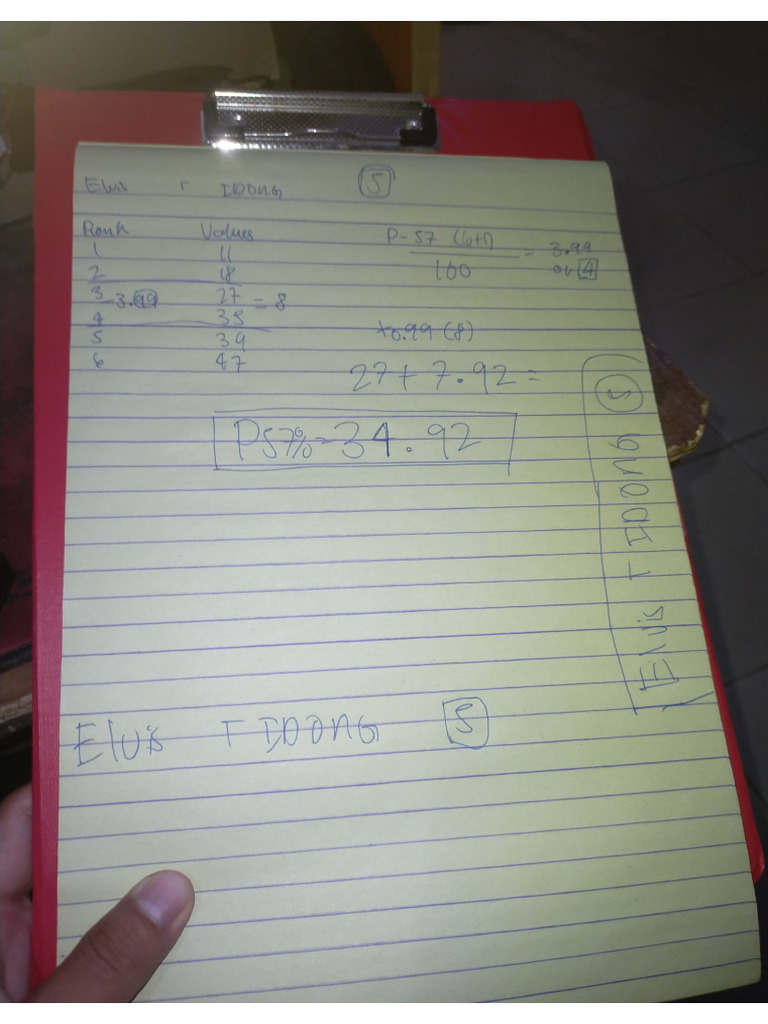 Elvis T IDONG 5
Rank Values
1 11
2 18
3 -3.99 27 = 8
4 35
5 39
6 47
P-57 (6+1) = 3.99
100 or 4
+0.99 (8)
27 + 7.92 =
P57% = 34.92
Elvis T IDONG 5
Elvis T IDONG 5